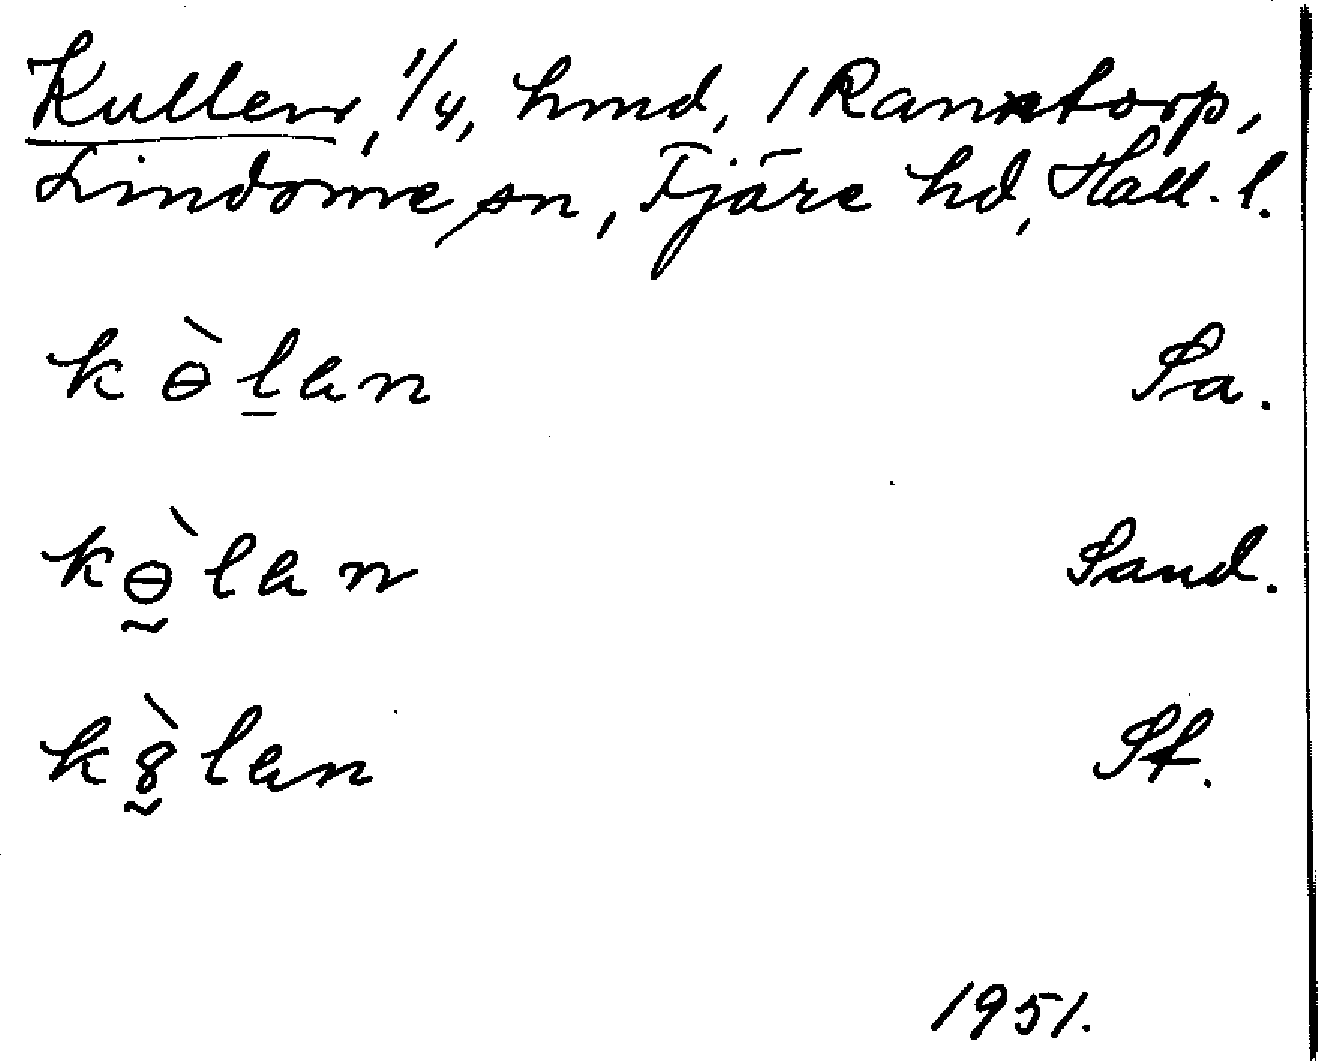 Kullen, 1/4, hmd, 1 Ranntorp,
Lindome sn, Fjäre hd, Hall. l.
kɵ̀l̠an Sa.
kɵ̰̀lan Sand.
kȣ̰̀lan St.
1951.